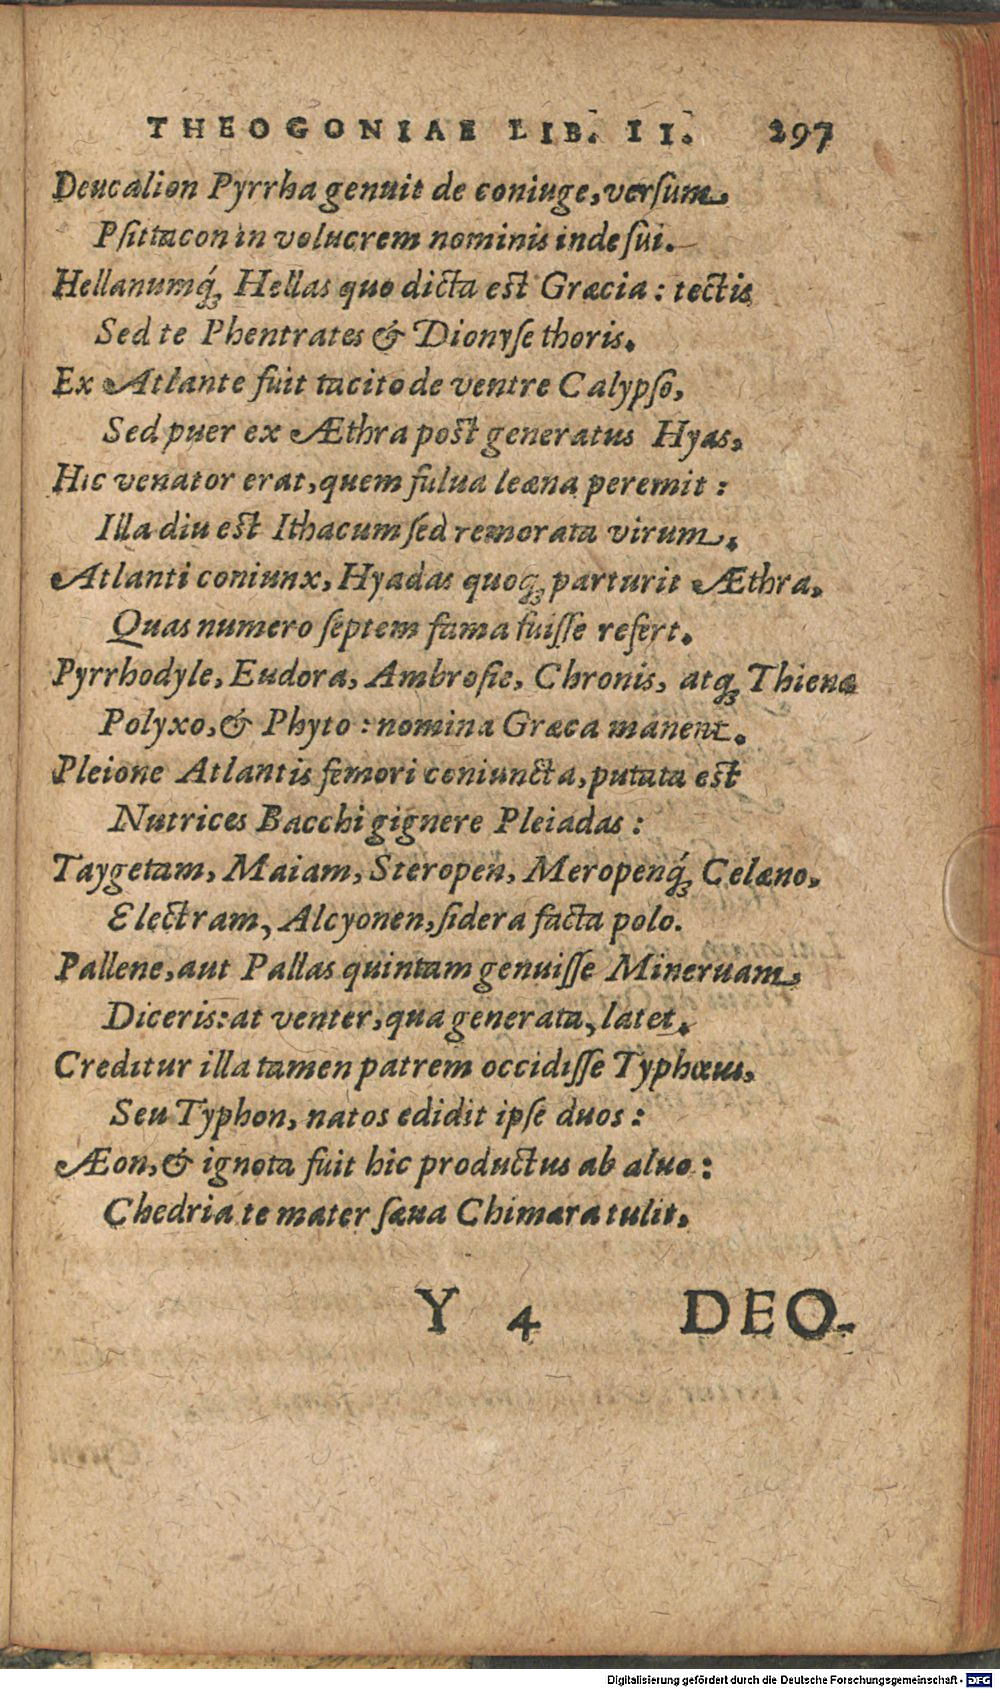 THEOGONIAE LIB. II. 297
Deucalion Pyrrha genuit de coniuge, versum,
Psittacon in volucrem nominis inde sui.
Hellanumq́ꝫ Hellas quo dicta est Græcia: tectis
Sed te Phentrates & Dionyse thoris.
Ex Atlante fuit tacito de ventre Calypso,
Sed puer ex Æthra post generatus Hyas,
Hic venator erat, quem fulua leæna peremit:
Illa diu est Ithacum sed remorata virum.
Atlanti coniunx, Hyadas quoqꝫ parturit Æthra,
Quas numero septem fama fuisse refert.
Pyrrhodyle, Eudora, Ambrosie, Chronis, atqꝫ Thiene
Polyxo, & Phyto: nomina Græca manent.
Pleione Atlantis femori coniuncta, putata est
Nutrices Bacchi gignere Pleiadas:
Taygetam, Maiam, Steropen, Meropenq́ꝫ Celæno,
Electram, Alcyonen, sidera facta polo.
Pallene, aut Pallas quintam genuisse Mineruam,
Diceris: at venter, qua generata, latet.
Creditur illa tamen patrem occidisse Typhœus,
Seu Typhon, natos edidit ipse duos:
Æon, & ignota fuit hic productus ab aluo:
Chedria te mater sæua Chimæra tulit.
Y 4 DEO-
Digitalisierung gefördert durch die Deutsche Forschungsgemeinschaft - DFG